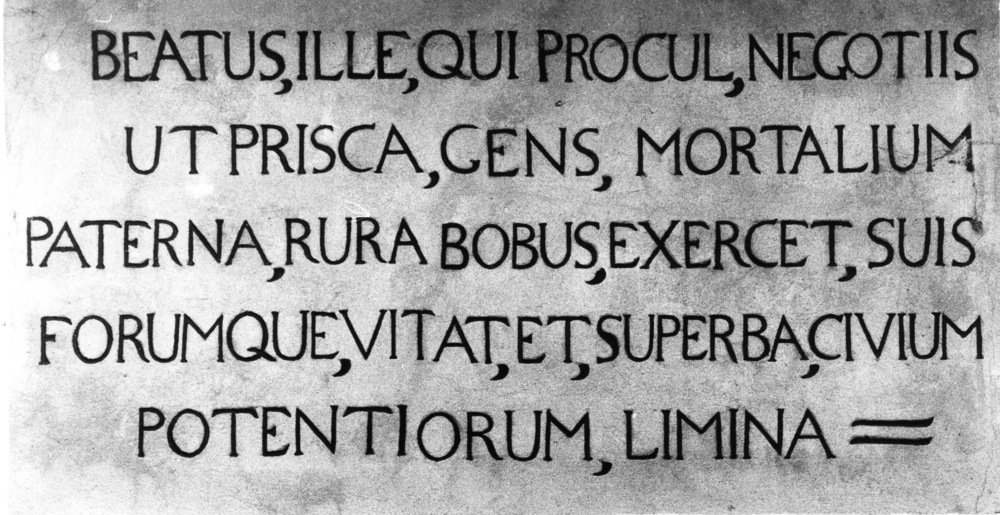 BEATUS, ILLE, QUI PROCUL, NEGOTIIS
UT PRISCA, GENS, MORTALIUM
PATERNA, RURA BOBUS, EXERCET, SUIS
FORUMQUE, VITAT, ET, SUPERBA, CIVIUM
POTENTIORUM, LIMINA =